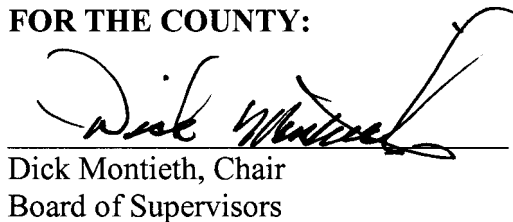 FOR THE COUNTY:
Dick Montieth
Dick Montieth, Chair
Board of Supervisors